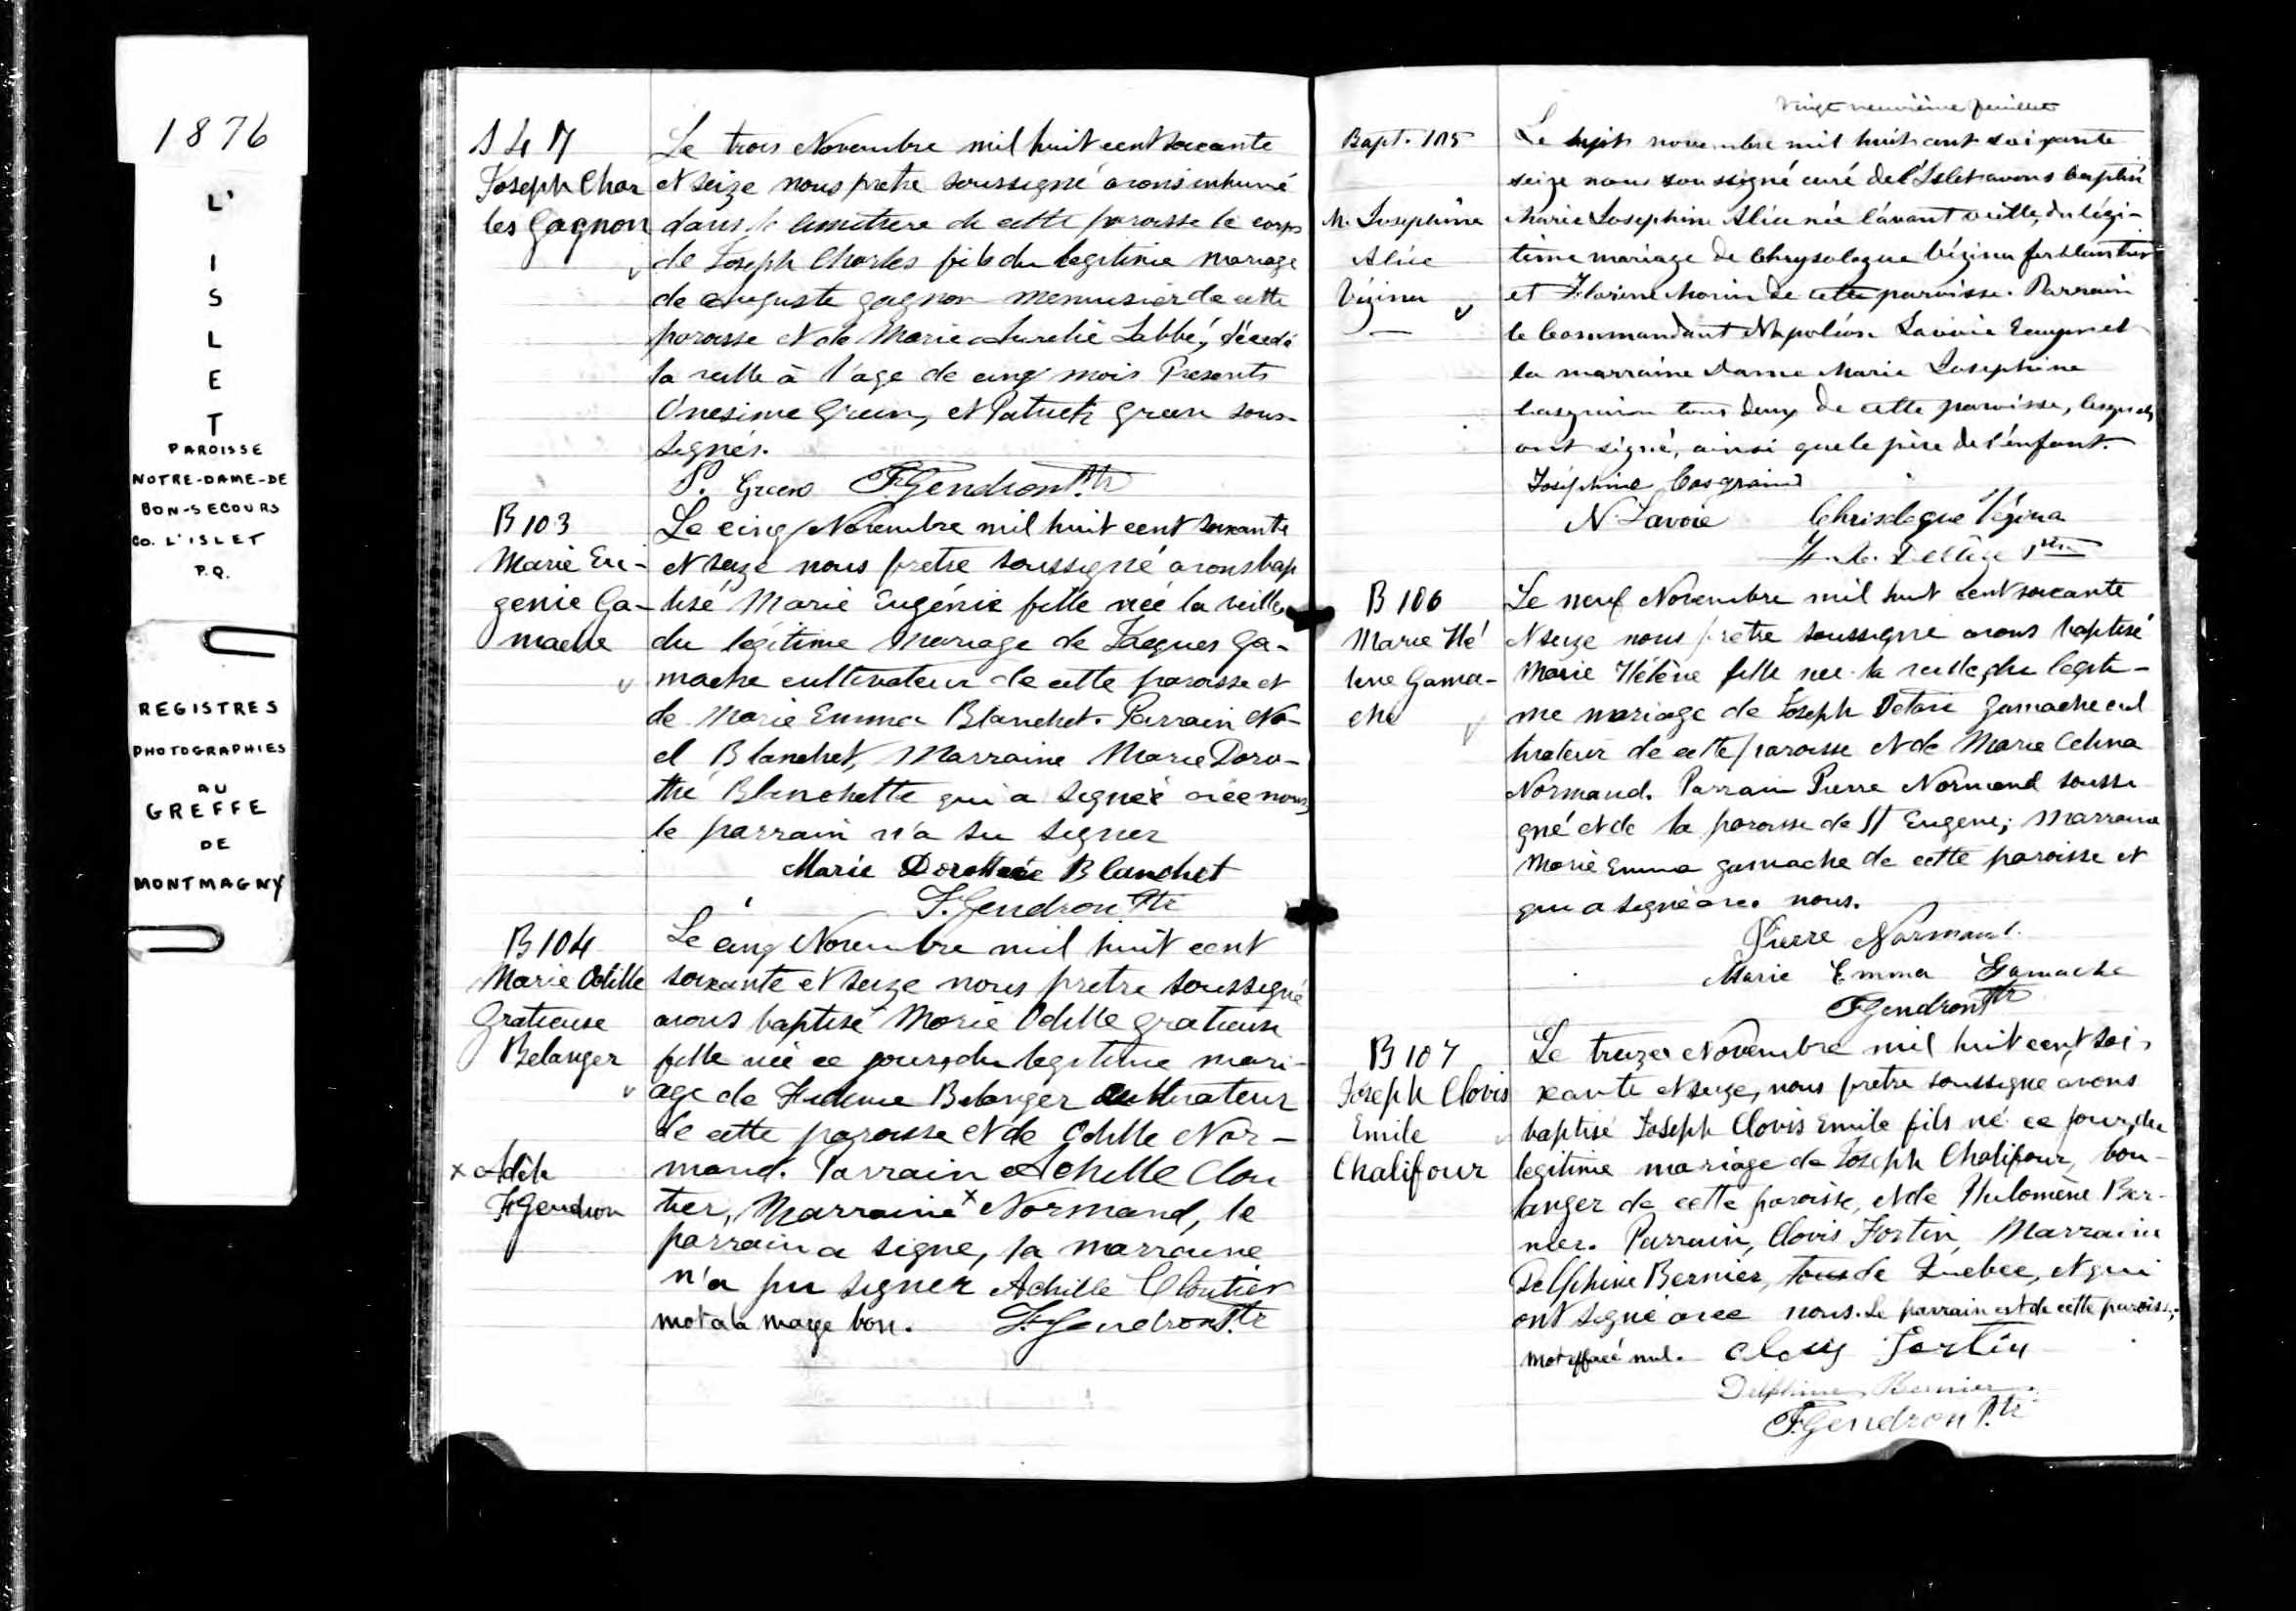 1876
L'
I
S
L
E
T
PAROISSE
NOTRE-DAME-DE
BON-SECOURS
CO. L'ISLET
P.Q.
REGISTRES
PHOTOGRAPHIES
AU
GREFFE
DE
MONTMAGNY
S 47
Joseph Char
les Gagnon
Le trois Novembre mil huit cent soixante
et seize nous pretre soussigné avons inhumé
dans le cimetiere de cette paroisse le corps
de Joseph Charles fils du legitime mariage
de Auguste Gagnon menuisier de cette
paroisse et de Marie Aurelie Labbé, décedé
la veille à l'age de cinq mois Presents
Onesime Green, et Patrick Green sous-
signés.
P. Green FGendron Ptr
B 103
Marie Eu-
genie Ga-
mache
Le cinq Novembre mil huit cent soixante
et seize nous pretre soussigné avons bap
tisé Marie Eugénie fille née la veille,
du légitime mariage de Jacques Ga-
mache cultivateur de cette paroisse et
de Marie Emma Blanchet. Parrain No-
el Blanchet, Marraine Marie Doro-
thé Blanchette qui a signé avec nous,
le parrain n'a su signer
Marie Dorothée Blanchet
F.Gendron Ptr
B 104
Marie Odille
Gratieuse
Belanger
x Adèle
F.Gendron
Le cinq Novembre mil huit cent
soixante et seize nous pretre soussigné
avons baptisé Marie Odille Gratieuse
fille née ce jour, du legitime mari-
age de Belanger cultivateur
de cette paroisse et de Odille Nor-
mand. Parrain Achille Clou
tier, Marraine x Normand, le
parrain a signé, la marraine
n'a pu signer Achille Cloutier
mot à la marge bon. F.Gendron Ptr
vingt neuvième feuillet
Bapt. 105
M. Josephine
Alice
Vézina
Le sept novembre mil huit cent soixante
seize nous soussigné curé de l'Islet avons baptisé
Marie Josephine Alice née l'avant veille, du légi-
time mariage de Chrysologue Vézina ferblantier
et Florine Morin de cette paroisse. Parrain
le Commandant Napoléon Lavoie Ecuyer et
la marraine Dame Marie Josephine
Casgrain tous deux de cette paroisse, lesquels
ont signé, ainsi que le père de l'enfant.
Joséphine Casgrain
N. Lavoie Chrisologue Vézina
Delâge Ptre
B 106
Marie Hé
lene Gama-
che
Le neuf Novembre mil huit cent soixante
et seize nous pretre soussigne avons baptisé
Marie Hélène fille née la veille, du legiti-
me mariage de Joseph Gamache cul
tivateur de cette paroisse et de Marie Celina
Normand. Parrain Pierre Normand soussi
gné et de la paroisse de St Eugene; Marraine
Marie Emma Gamache de cette paroisse et
qui a signé avec nous.
Pierre Normand.
Marie Emma Gamache
FGendron Ptr
B 107
Joseph Clovis
Emile
Chalifour
Le treize Novembre mil huit cent soi-
xante et seize, nous pretre soussigné avons
baptisé Joseph Clovis Emile fils né ce jour, du
legitime mariage de Joseph Chalifour, bou-
langer de cette paroisse, et de Philomène Ber-
nier. Parrain, Clovis Fortin, Marraine
Delphine Bernier, tous de Quebec, et qui
ont signé avec nous. Le parrain est de cette paroisse;
mot effacé nul. Clovis Fortin
Delphine Bernier.
F.Gendron Ptr